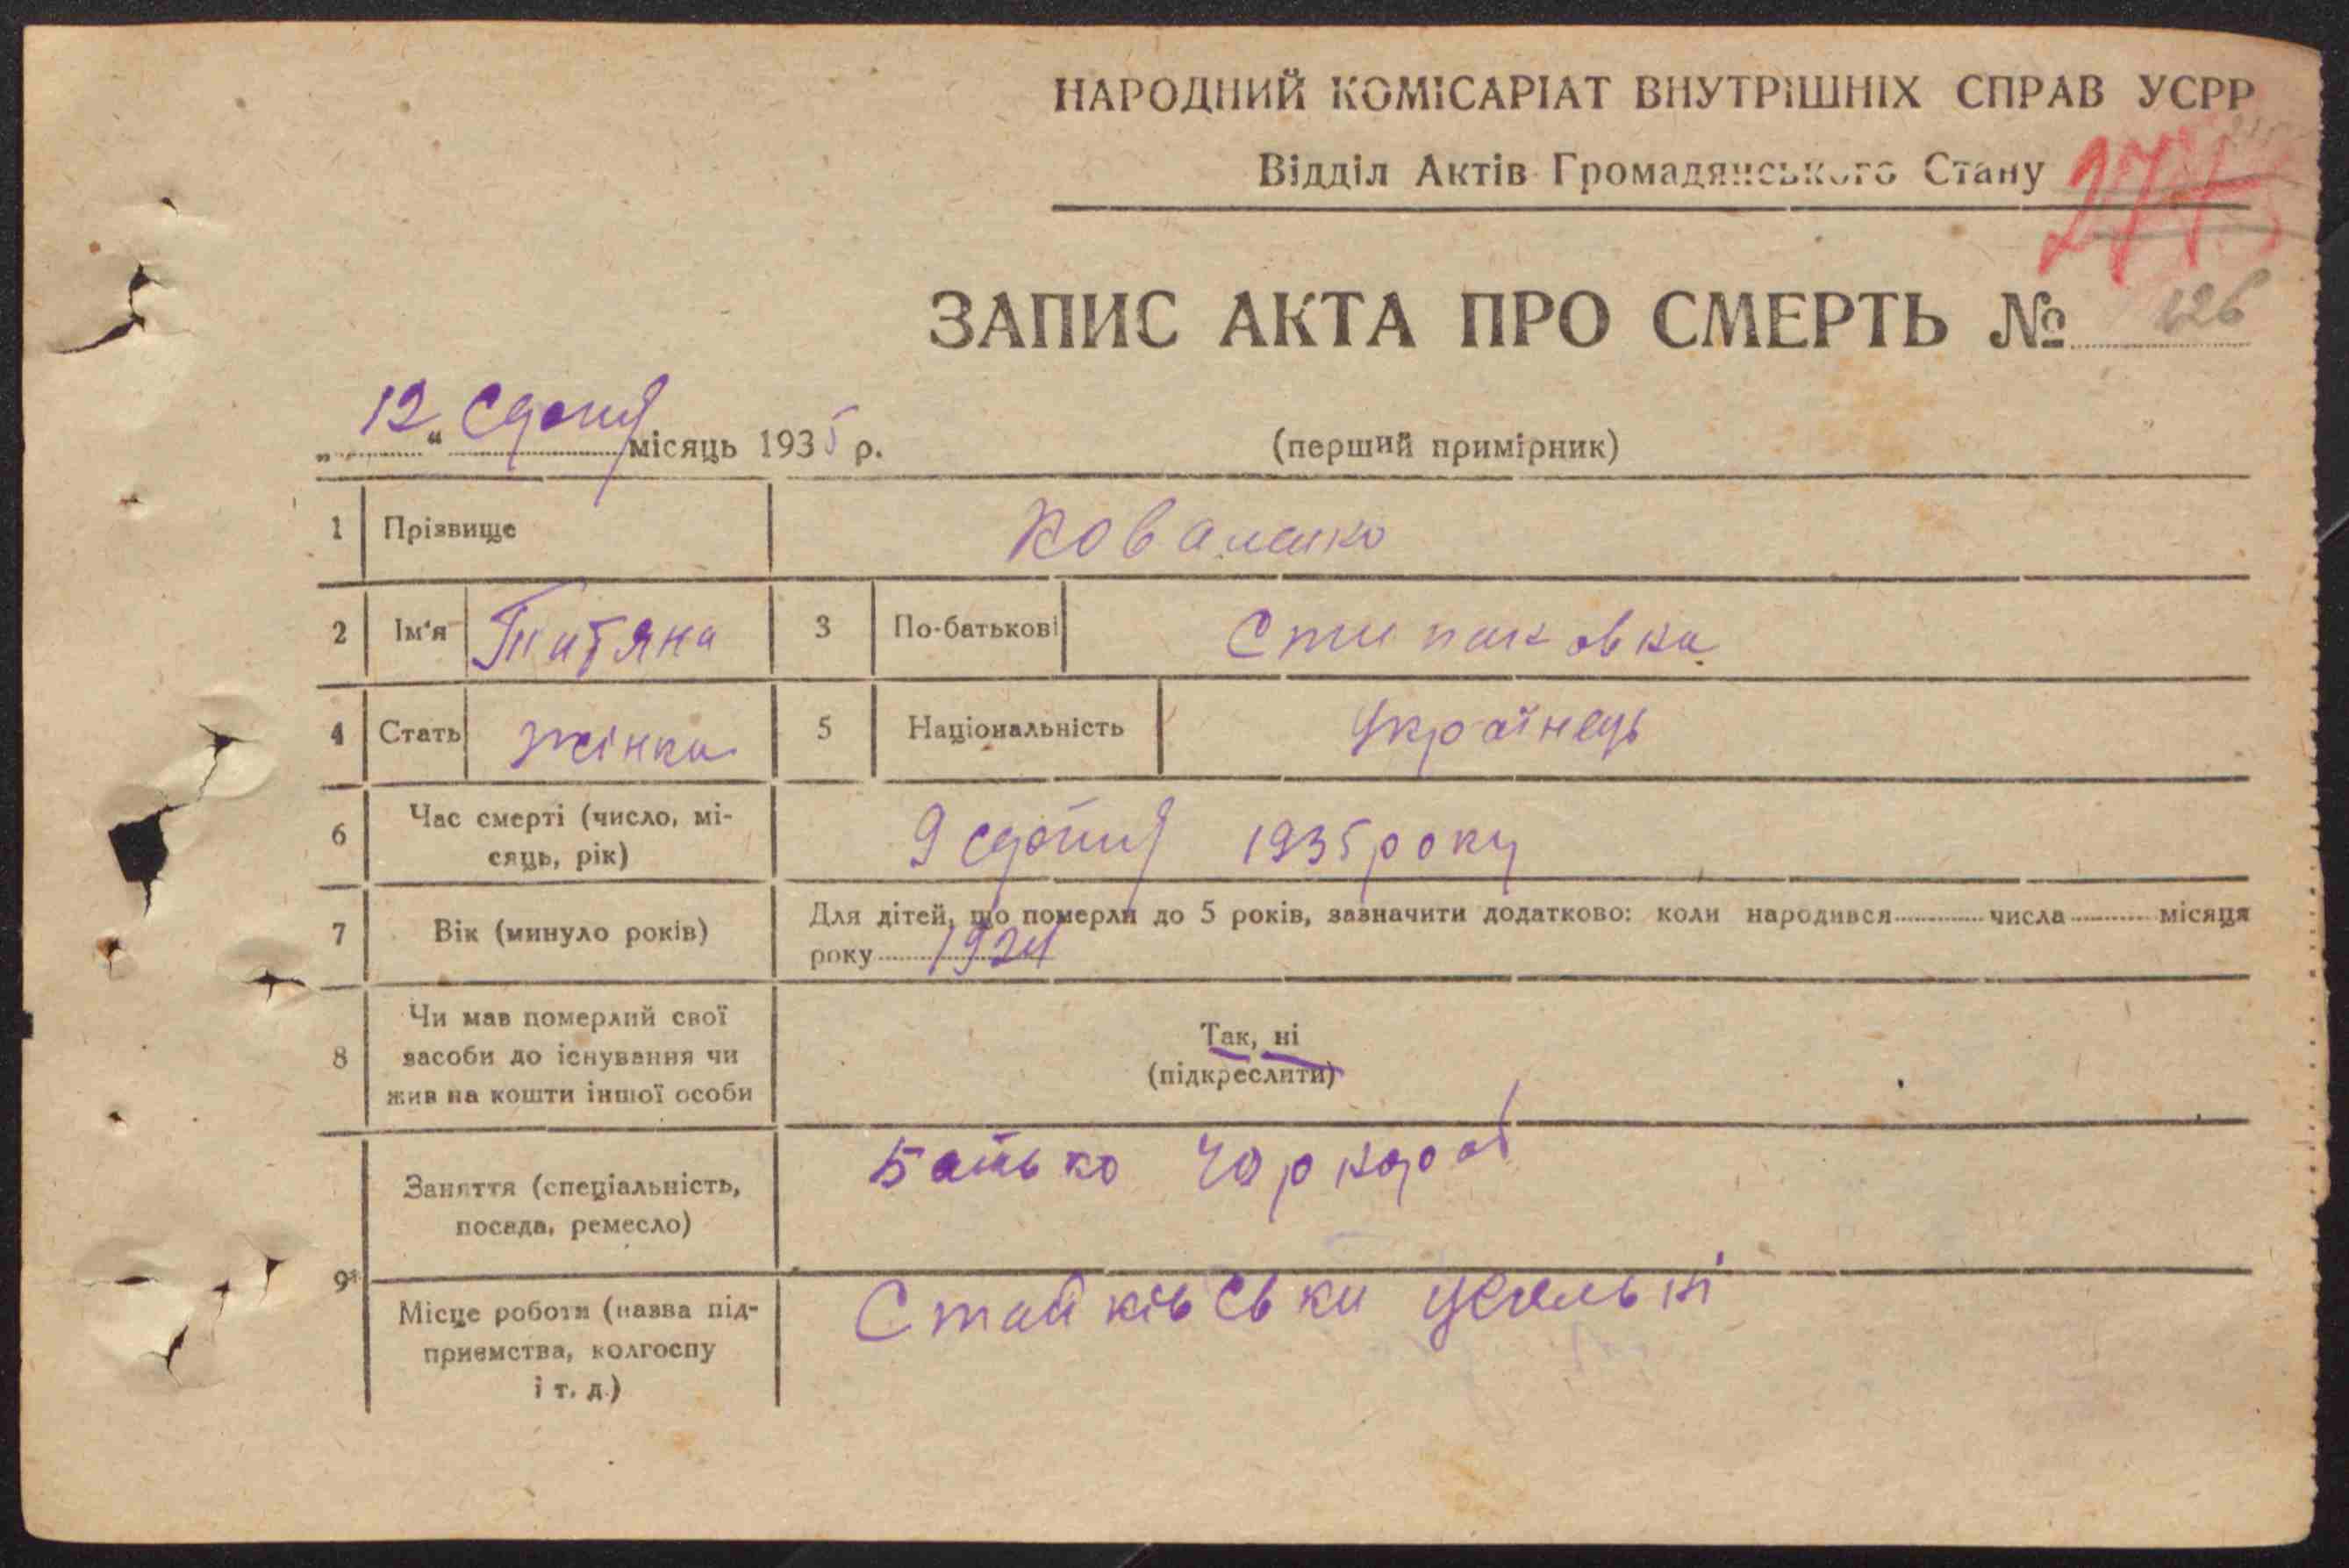 НАРОДНИЙ КОМІСАРІАТ ВНУТРІШНІХ СПРАВ УСРР
Відділ Актів Громадянського Стану
ЗАПИС АКТА ПРО СМЕРТЬ № 126
„12“ місяць 1935 р.
(перший примірник)
1 Прізвище Коваленко
2 Ім'я Татяна 3 По-батькові
4 Стать жінка 5 Національність Українець
6 Час смерті (число, мі-
сяць, рік) 9 1935 року
7 Вік (минуло років) Для дітей, що померли до 5 років, зазначити додатково: коли народився числа місяця
року 1924
8 Чи мав померлий свої
засоби до існування чи
жив на кошти іншої особи
Так, ні
(підкреслити)
9 Заняття (спеціальність,
посада, ремесло) Батько
Місце роботи (назва під-
приємства, колгоспу
і т. д.)